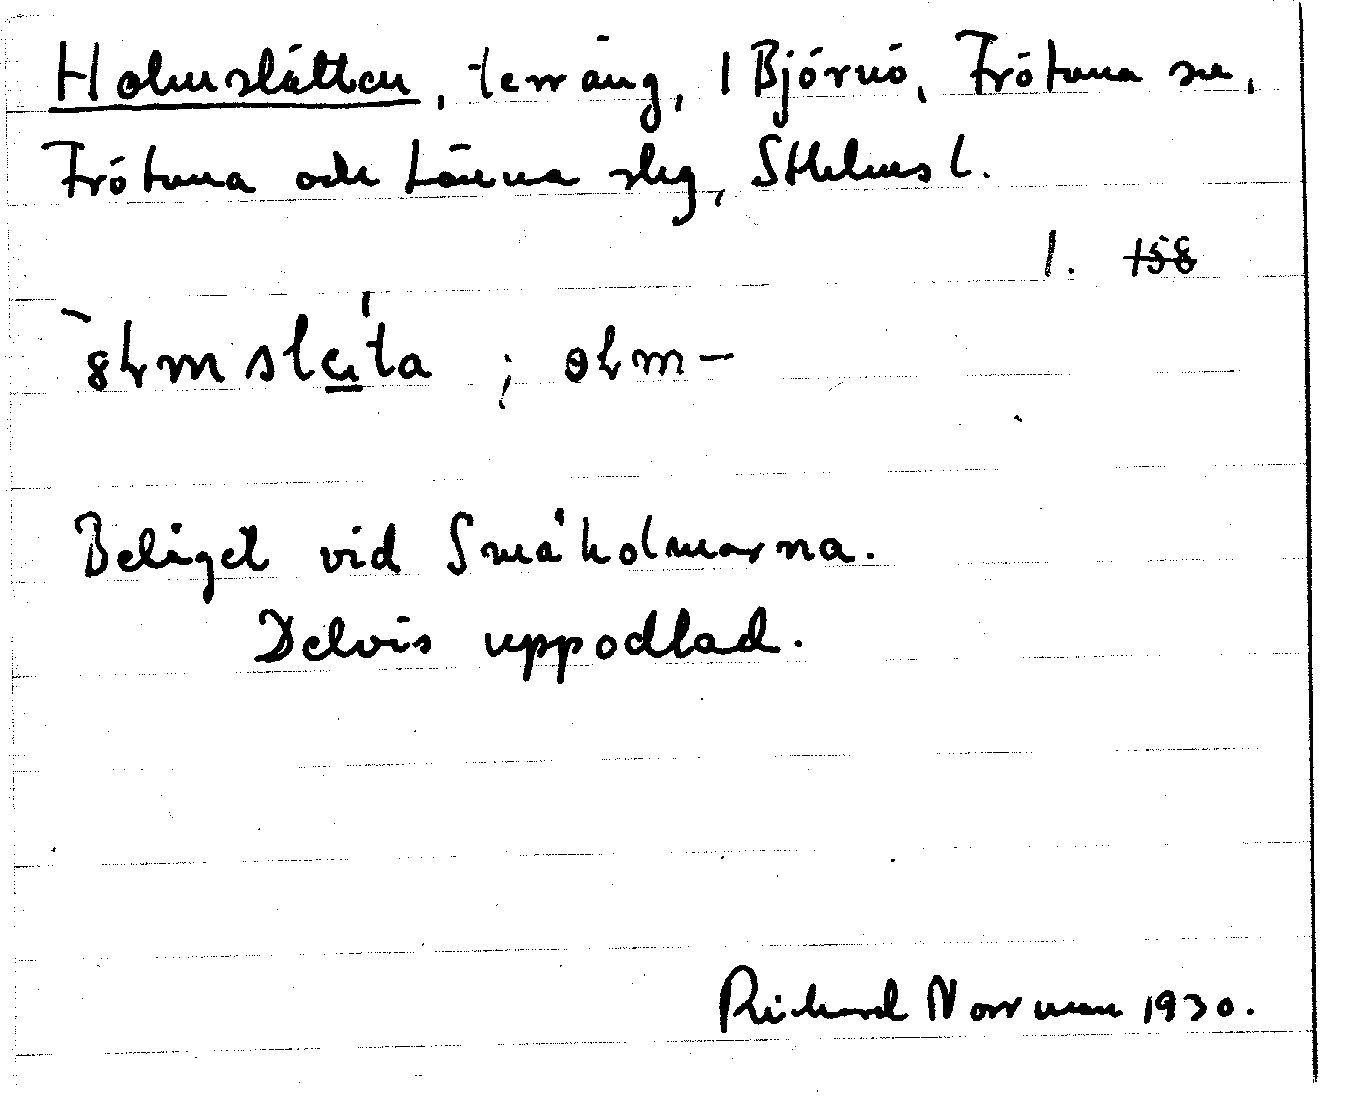 Holmslätten, terräng, 1 Björnö, Frötuna sn,
Frötuna och Länna slg, Sthlms l.
1. 158
Beläget vid Småholmarna.
Delvis uppodlad.
Richard Norrman 1930.